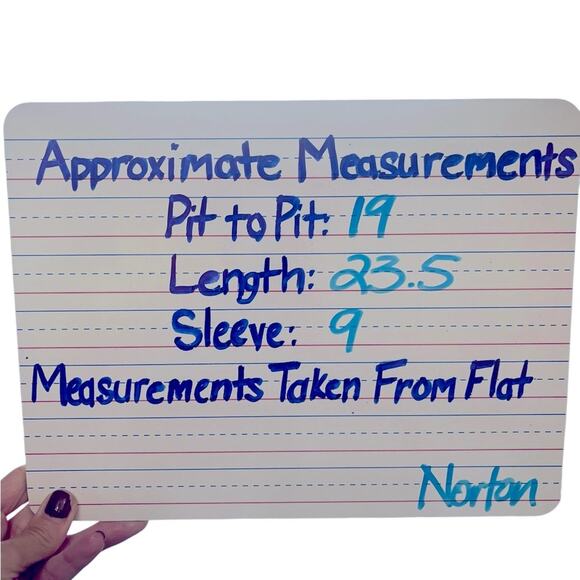 Approximate Measurements
Pit to Pit: 19
Length: 23.5
Sleeve: 9
Measurements Taken From Flat
Norton